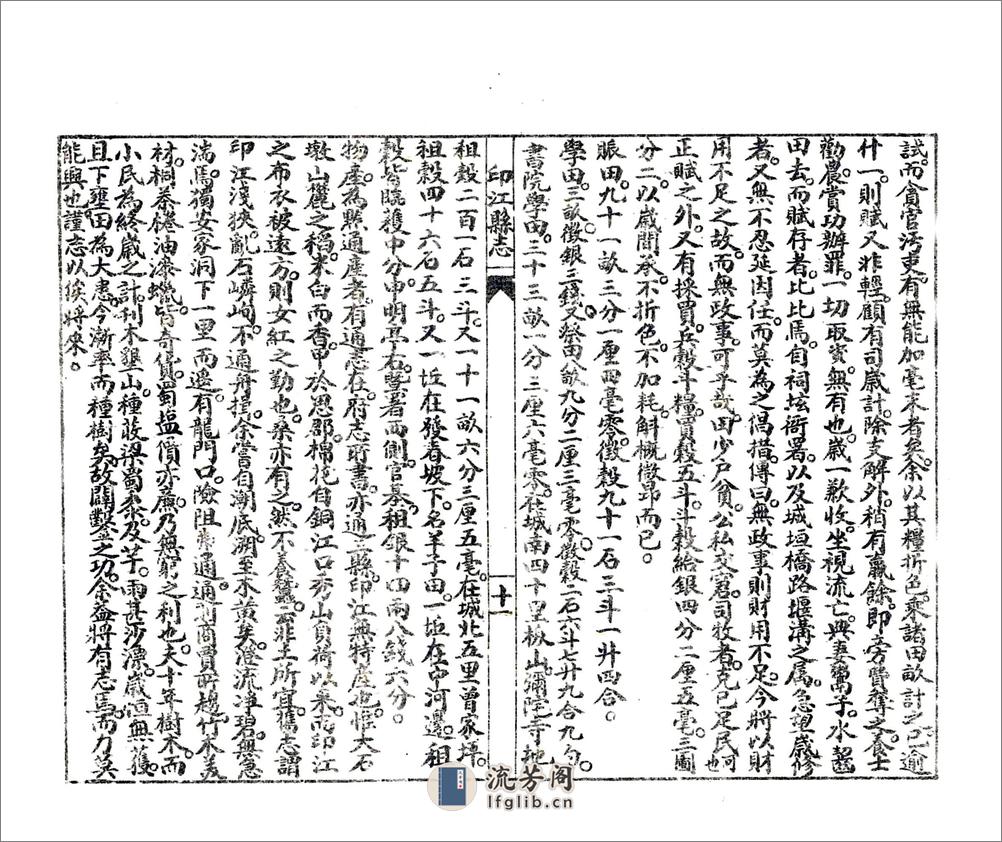 試而貪官污吏有無能加毫末者矣余以其糧折色乘諸田畝計之已逾
什一則賦又非輕顧有司歲計除支解外稍有羸餘即旁貲奪之食士
勸農賞功辦罪一切取資無有也歲一歉收坐視流亡與妻鬻子水齧
田去而賦存者比比焉自祠坛衙署以及城垣橋路堰溝之属急望歲修
者又無不忍延因任而莫為之倡措傳曰無政事則財用不足今將以財
用不足之故而無政事可乎哉田少户貧公私交窘司牧者克已足民也何
正賦之外又有採買兵穀斗糧買穀五斗斗穀給銀四分二厘五毫三圖
分二以歲間承不折色不加耗斛概徵昂而已
賑田九十一畝三分一厘四毫零徵穀九十一石三斗一廾四合
學田三畝徵銀三錢又祭田畝九分二厘三毫零徵穀二石六斗七廾九合九勺
書院學田三十三畝一分三厘六毫零在城南四十里楸山彌陀寺地
印江縣志
十一
租穀二百一石三斗又一十一畝六分三厘五毫在城北五里曾家坪
租穀四十六石五斗又一坵在發春坡下名羊子田一坵在中河邊租
穀皆晓穫中分申明亭右暨署西側官基租銀十四兩八錢六分
物產為縣通產者有通志在府志所書亦通三縣印江無特產也惟大石
墩山櫃之稻米白而香甲於思郡棉花自銅江口秀山負荷以来而印江
之布衣被遠方則女紅之勤也桑亦有之然不養蠶云非土所宜舊志謂
印江淺狹亂石嶙峋不通舟揖余嘗自潮底溯至木黄矣澄流净碧無急
湍焉獨安家洞下一里而遥有龍門口險阻為通通則商賈所趨竹木美
材桐茶棬油漆蠟皆奇貨蜀塩價亦廉乃無窮之利也夫十年樹木而
小民為終歲之計刊木墾山種荍粱蜀黍及芋雨甚沙漂歲洹無獲
且下壅田為大患今漸率而種樹矣故闢鑿之功余益將有志焉而力莫
能興也謹志以俟將來
流芳阁
lfglib.cn